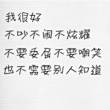 我很好
不吵不闹不炫耀
不要委屈不要嘲笑
也不需要别人知道